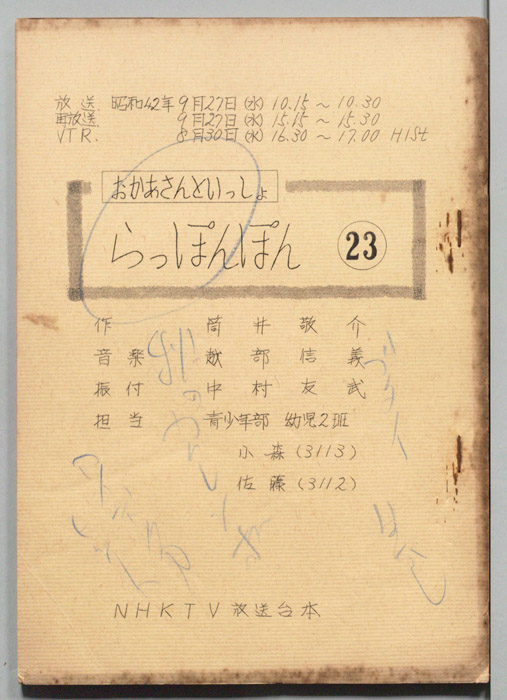 放送 昭和42年9月27日(水) 10.15～10.30
再放送 9月27日(水) 15.15～15.30
VTR. 8月30日(水) 16.30～17.00 H1St
おかあさんといっしょ
らっぽんぽん 23
作 筒井敬介
音楽 越部信義
振付 中村友武
担当 青少年部 幼児2班
小森(3113)
佐藤(3112)
NHKTV放送台本